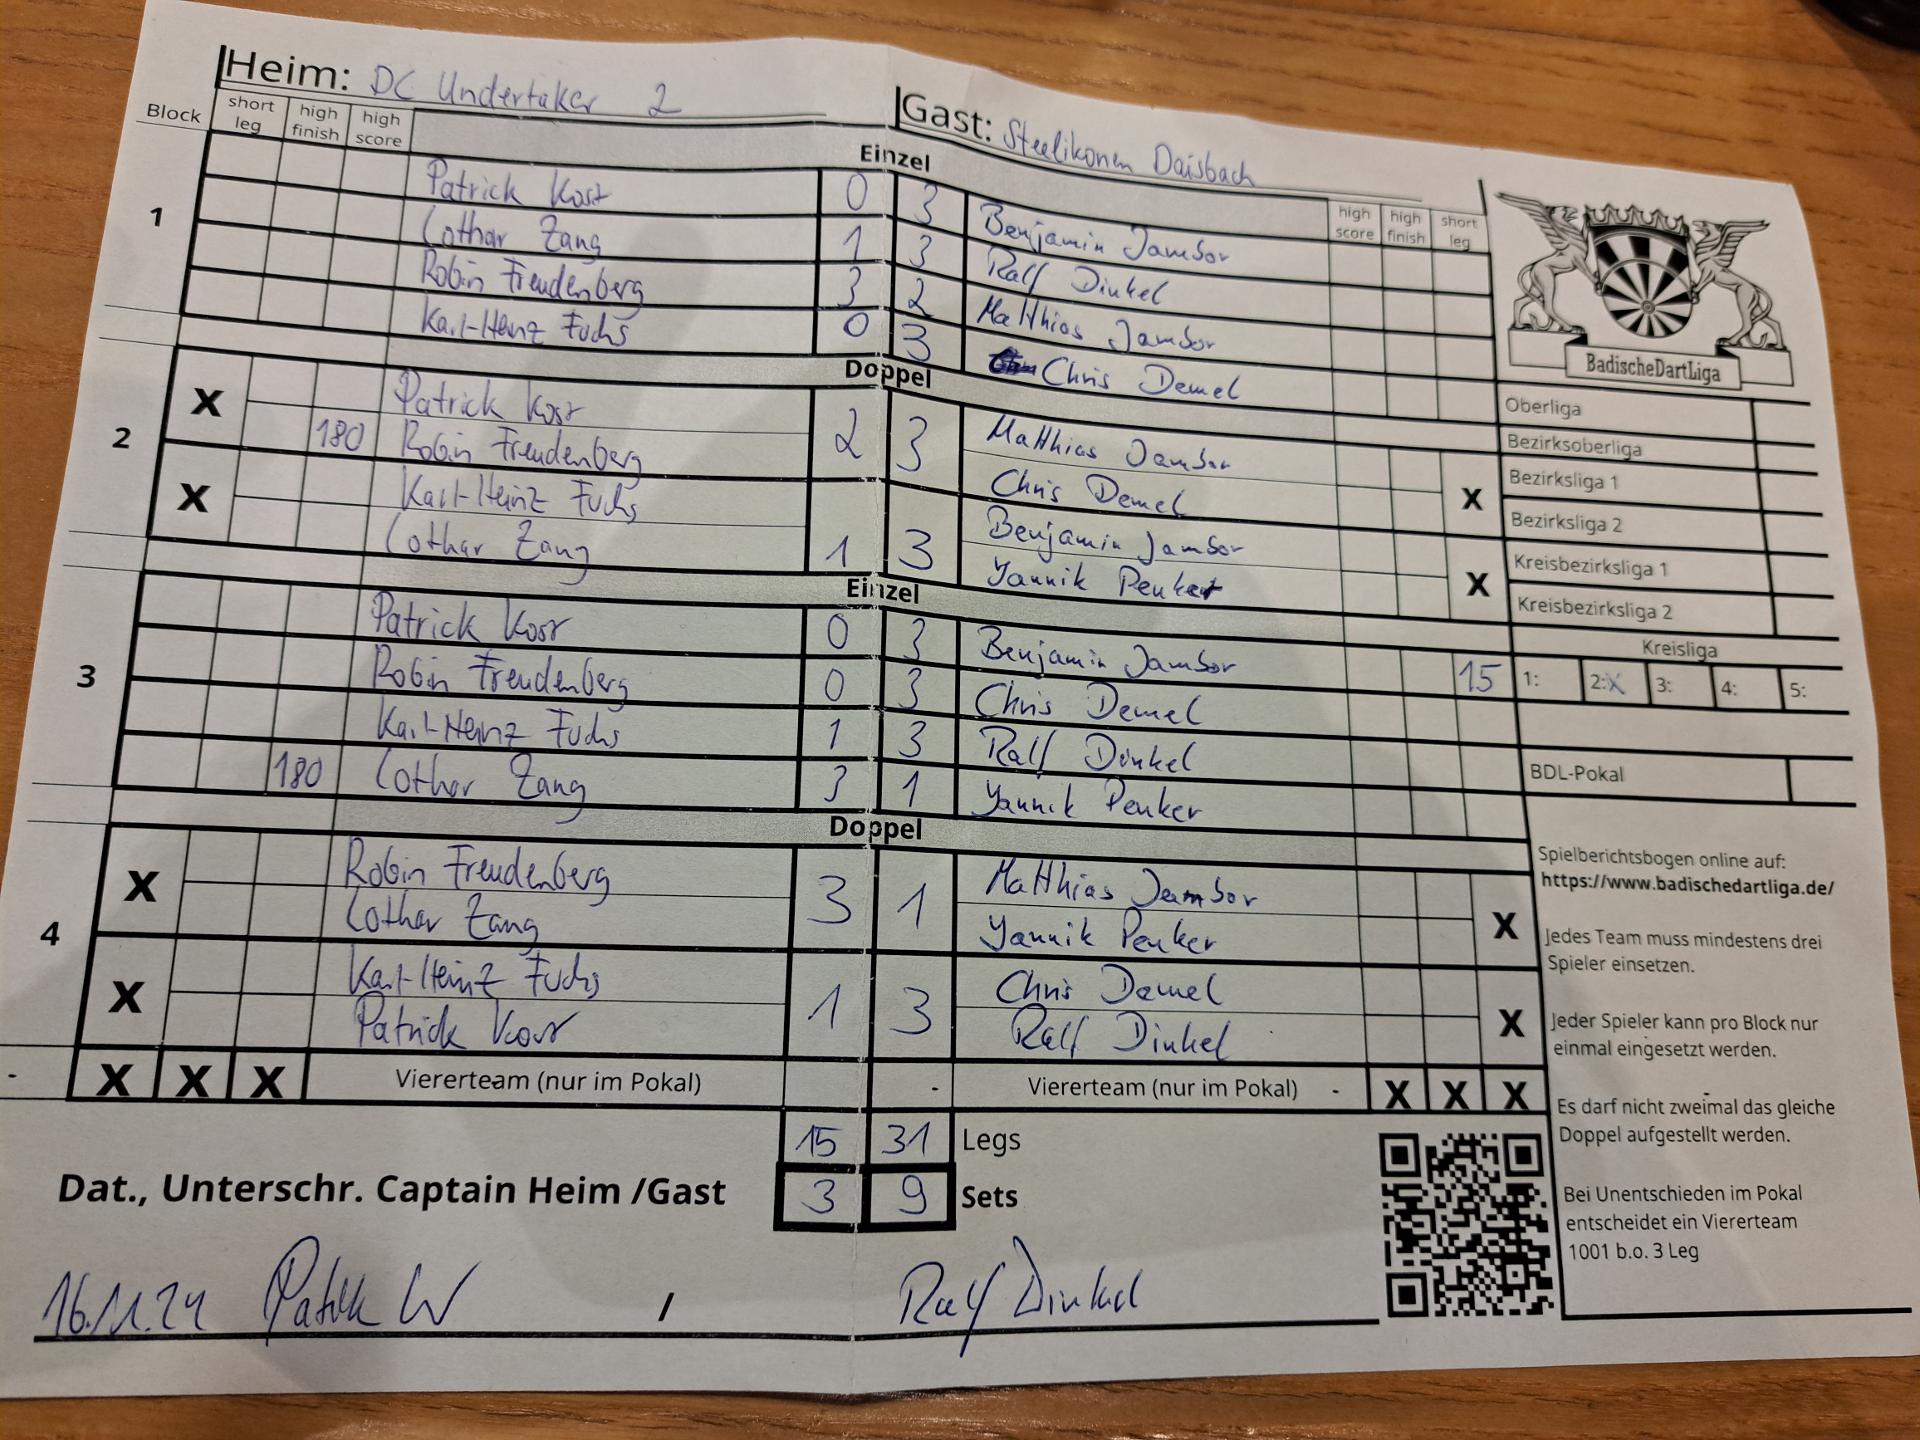 Heim: DC Undertaker 2
Gast: Steelikonen Daisbach
Block short leg high finish high score
Einzel
high score high finish short leg
1
Patrick Kost 0 3 Benjamin Jambor
Lothar Zang 1 3 Ralf Dinkel
Robin Freudenberg 3 2 Matthias Jambor
Karl-Heinz Fuchs 0 3 Chris Demel
Doppel
2
X Patrick Kost 2 3 Matthias Jambor X
180 Robin Freudenberg Chris Demel
X Karl-Heinz Fuchs 1 3 Benjamin Jambor X
Lothar Zang Yannik Penker
Einzel
3
Patrick Kost 0 3 Benjamin Jambor 15
Robin Freudenberg 0 3 Chris Demel
Karl-Heinz Fuchs 1 3 Ralf Dinkel
180 Lothar Zang 3 1 Yannik Penker
Doppel
4
X Robin Freudenberg 3 1 Matthias Jambor X
Lothar Zang Yannik Penker
X Karl-Heinz Fuchs 1 3 Chris Demel X
Patrick Kost Ralf Dinkel
- X X X Viererteam (nur im Pokal) - Viererteam (nur im Pokal) - X X X
15 31 Legs
3 9 Sets
Dat., Unterschr. Captain Heim /Gast
16.11.24 / Ralf Dinkel
BadischeDartLiga
Oberliga
Bezirksoberliga
Bezirksliga 1
Bezirksliga 2
Kreisbezirksliga 1
Kreisbezirksliga 2
Kreisliga
1: 2:X 3: 4: 5:
BDL-Pokal
Spielberichtsbogen online auf:
https://www.badischedartliga.de/
Jedes Team muss mindestens drei
Spieler einsetzen.
Jeder Spieler kann pro Block nur
einmal eingesetzt werden.
Es darf nicht zweimal das gleiche
Doppel aufgestellt werden.
Bei Unentschieden im Pokal
entscheidet ein Viererteam
1001 b.o. 3 Leg